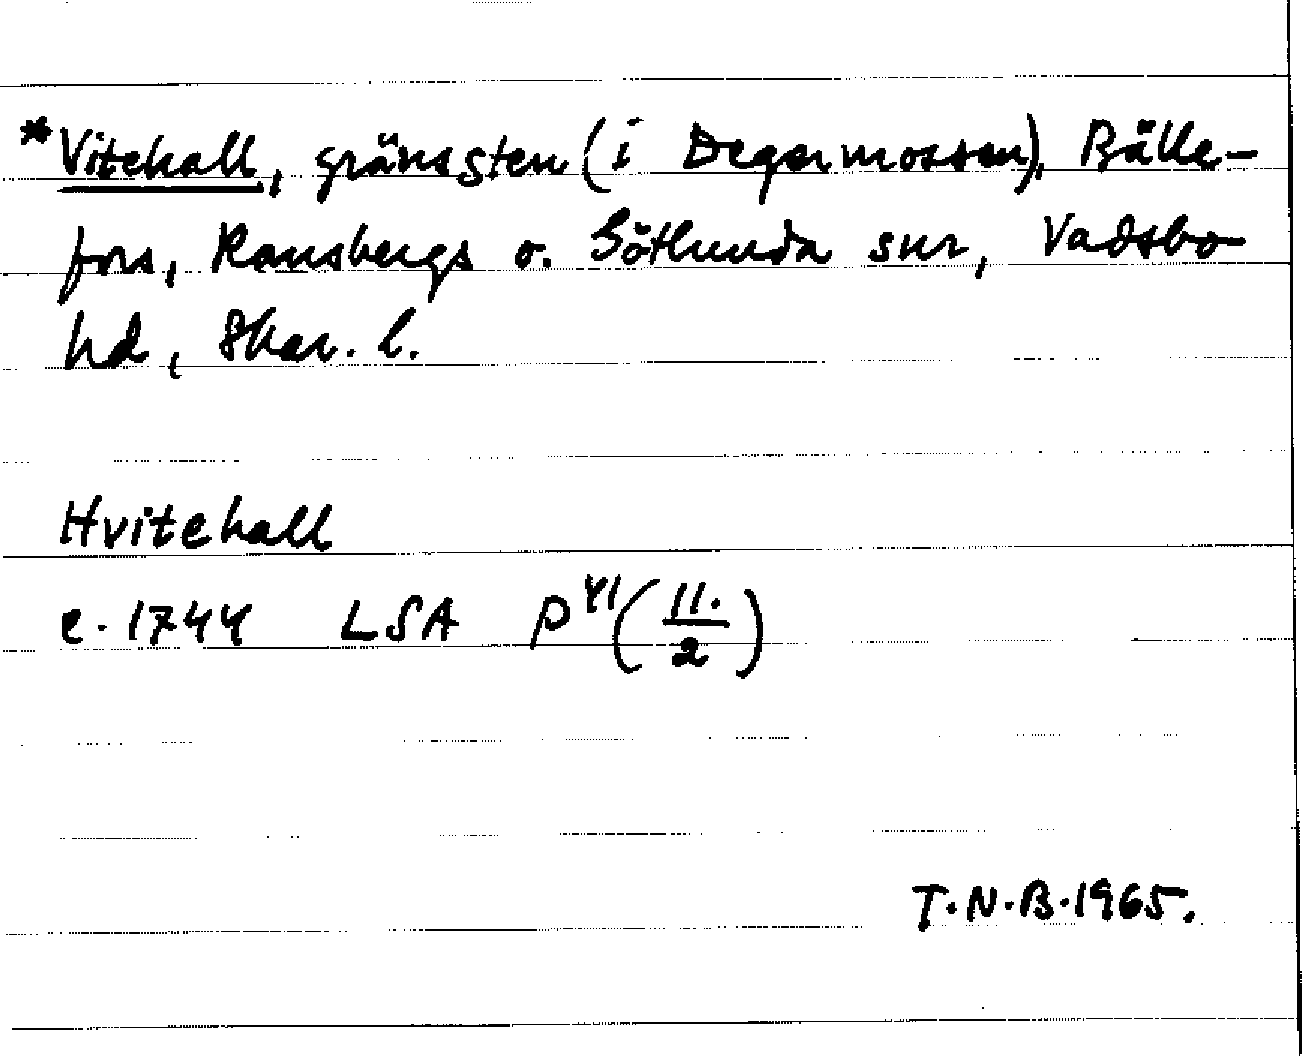 *Vitehall, gränssten (i Degermossen), Bälle-
fors, Ransbergs o. Götlunda snr, Vadsbo
hd, Skar. l.
Hvitehall
c. 1744 LSA P 41 (11./2)
T.N.B. 1965.